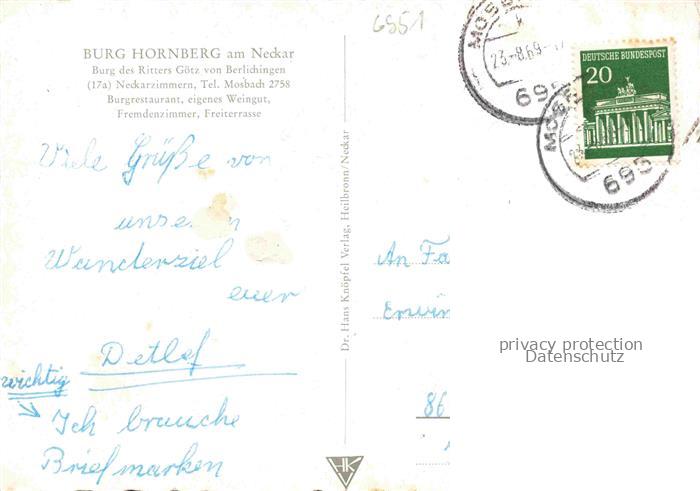 6551
BURG HORNBERG am Neckar
Burg des Ritters Götz von Berlichingen
(17a) Neckarzimmern, Tel. Mosbach 2758
Burgrestaurant, eigenes Weingut,
Fremdenzimmer, Freiterrasse
Viele Grüße von
unserem
Wanderziel
euer
Detlef
wichtig
Ich brauche
Briefmarken
Dr. Hans Knöpfel Verlag, Heilbronn/Neckar
HK
23.-8.69
695
DEUTSCHE BUNDESPOST
20
695
An Fa
Erwin
privacy protection
Datenschutz
86